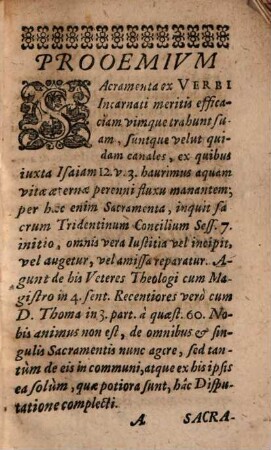 PROOEMIVM
SAcramenta ex VERBI
Incarnati meritis effica-
ciam vimque trahunt su-
am, suntque velut qui-
dam canales, ex quibus
iuxta Isaiam 12. v. 3. haurimus aquam
vitæ æternæ perenni fluxu manantem;
per hæc enim Sacramenta, inquit sa
crum Tridentinum Concilium Sess. 7.
initio, omnis vera Iustitia vel incipit,
vel augetur, vel amissa reparatur. A-
gunt de his Veteres Theologi cum Ma-
gistro in 4. sent. Recentiores verò cum
D. Thoma in 3. part. à quæst. 60. No-
bis animus non est, de omnibus & sin-
gulis Sacramentis nunc agere, sed tan-
tùm de eis in communi, atque ex his ipsis
ea solùm, quæ potiora sunt, hâc Dispu-
tatione complecti.
A SACRA-